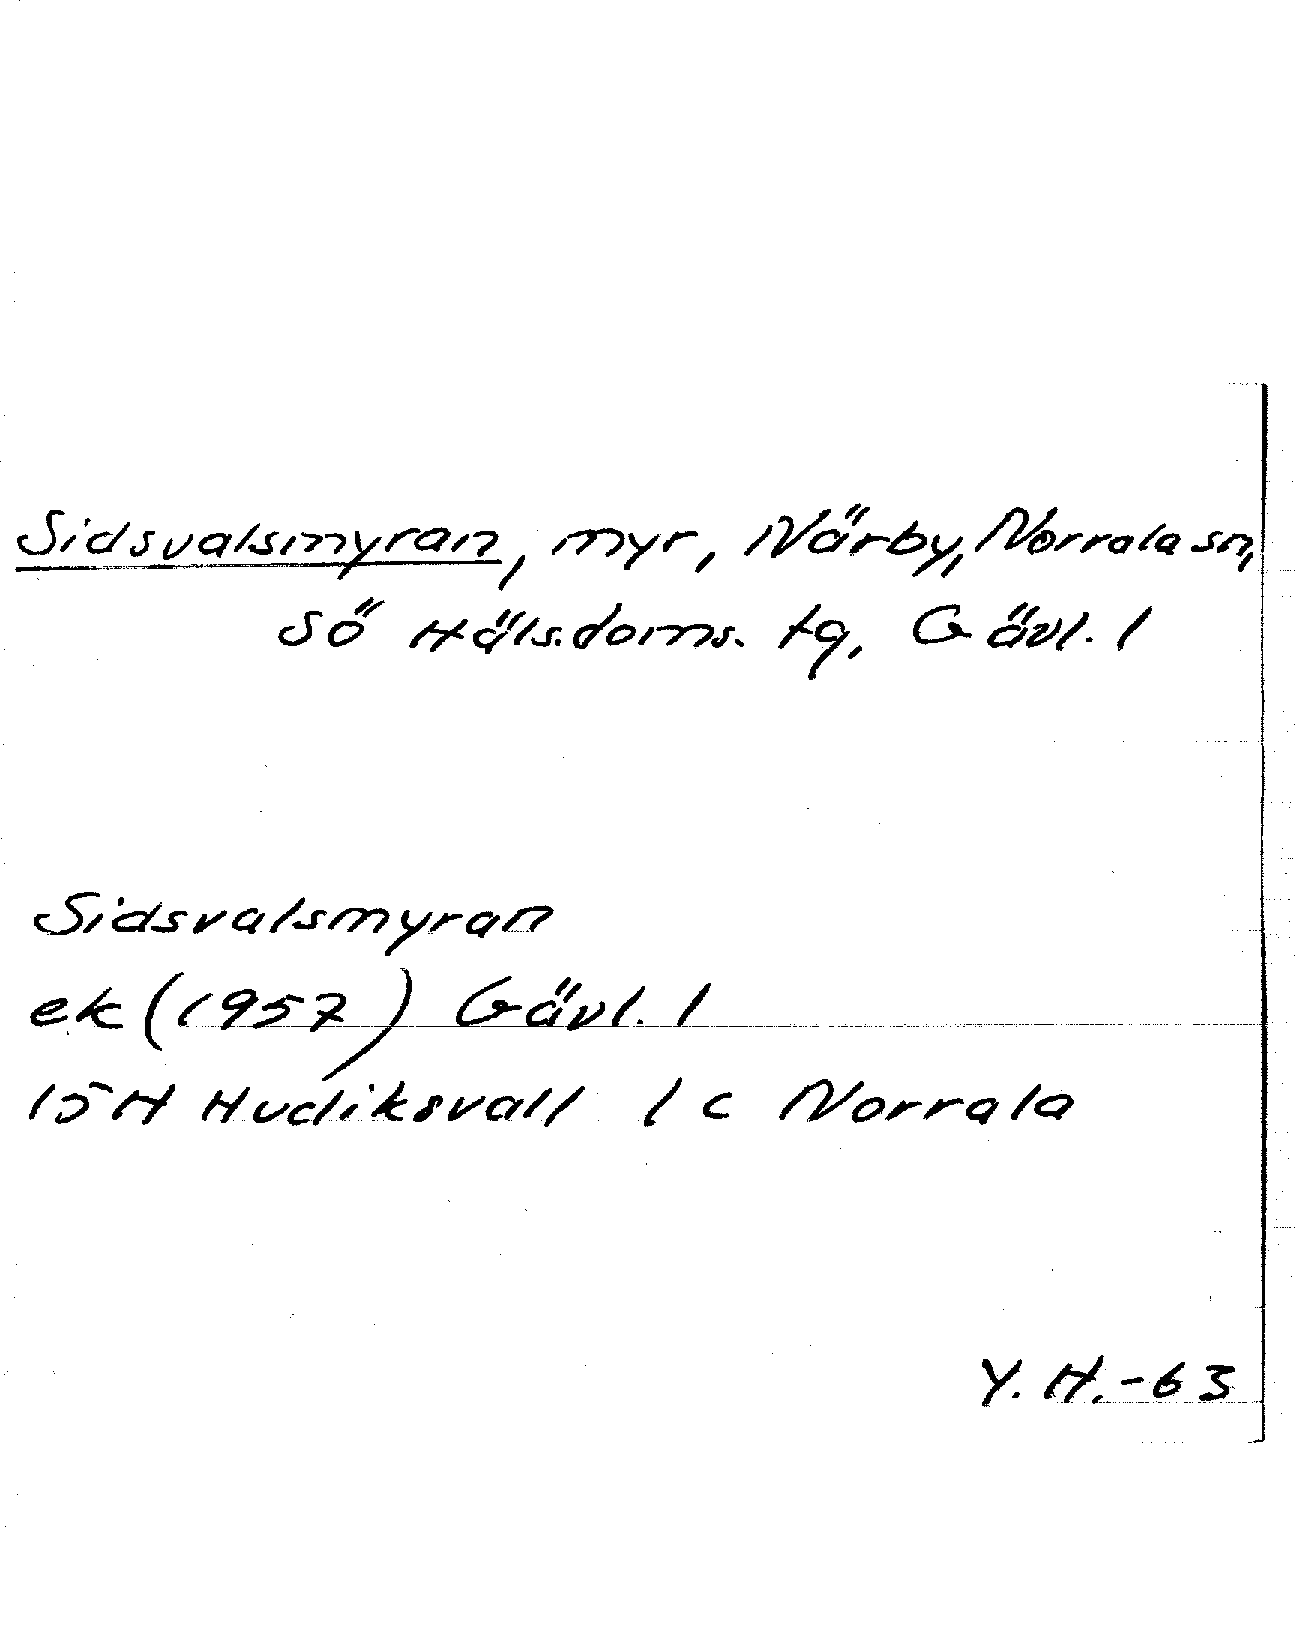 Sidsvalsmyran, myr, Närby, Norrala sn,
Sö Häls.doms. tg, Gävl. l
Sidsvalsmyran
ek (1957) Gävl. l
15H Hudiksvall 1 c Norrala
Y. H.-63